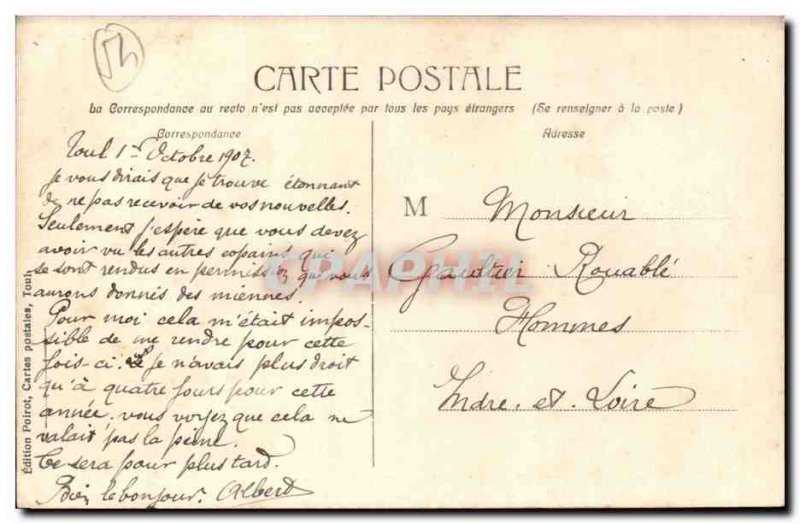 CARTE POSTALE
La Correspondance au recto n'est pas acceptée par tous les pays étrangers (Se renseigner à la poste)
Correspondance
Toul 1er Octobre 1907.
Je vous dirais que je trouve étonnant
de ne pas recevoir de vos nouvelles.
Seulement j'espère que vous devez
avoir vu les autres copains qui
se sont rendus en permission que vous
aurons donnés des miennes.
Pour moi cela m'était impos-
sible de me rendre pour cette
fois-ci. Je n'avais plus droit
qu'à quatre jours pour cette
année. vous voyez que cela ne
valait pas la peine.
Ce sera pour plus tard.
Bien le bonjour. Albert
Adresse
M Monsieur
Gaultier Rouablé
Hommes
Indre-et-Loire
Édition Poirot, Cartes postales, Toul
CPAPHIL